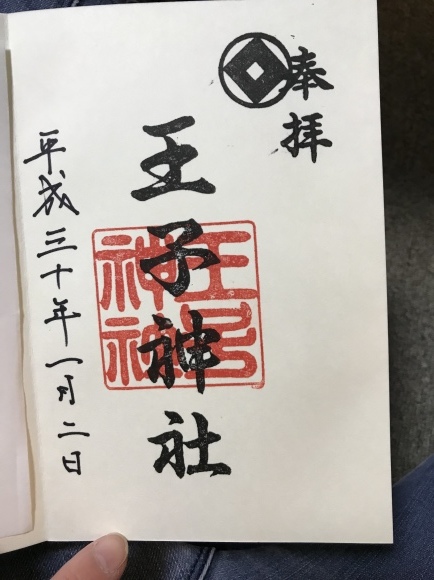 奉拝
王子神社
王子神社
平成三十年一月二日